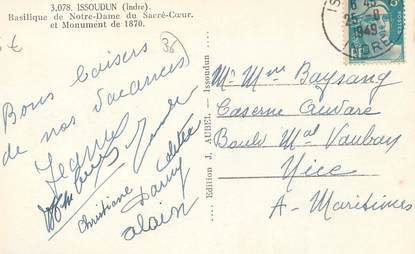 3.078. ISSOUDUN (Indre).
Basilique de Notre-Dame du Sacré-Cœur.
et Monument de 1870.
€
36
Bons baisers
de nos vacances
Jeanne
Colette
Christiane
Danny
alain
Edition J. AUBEL - Issoudun
1949
INDRE
Mr Mme Baysang
Caserne Auvare
Bould Mal Vauban
Nice
A-Maritimes